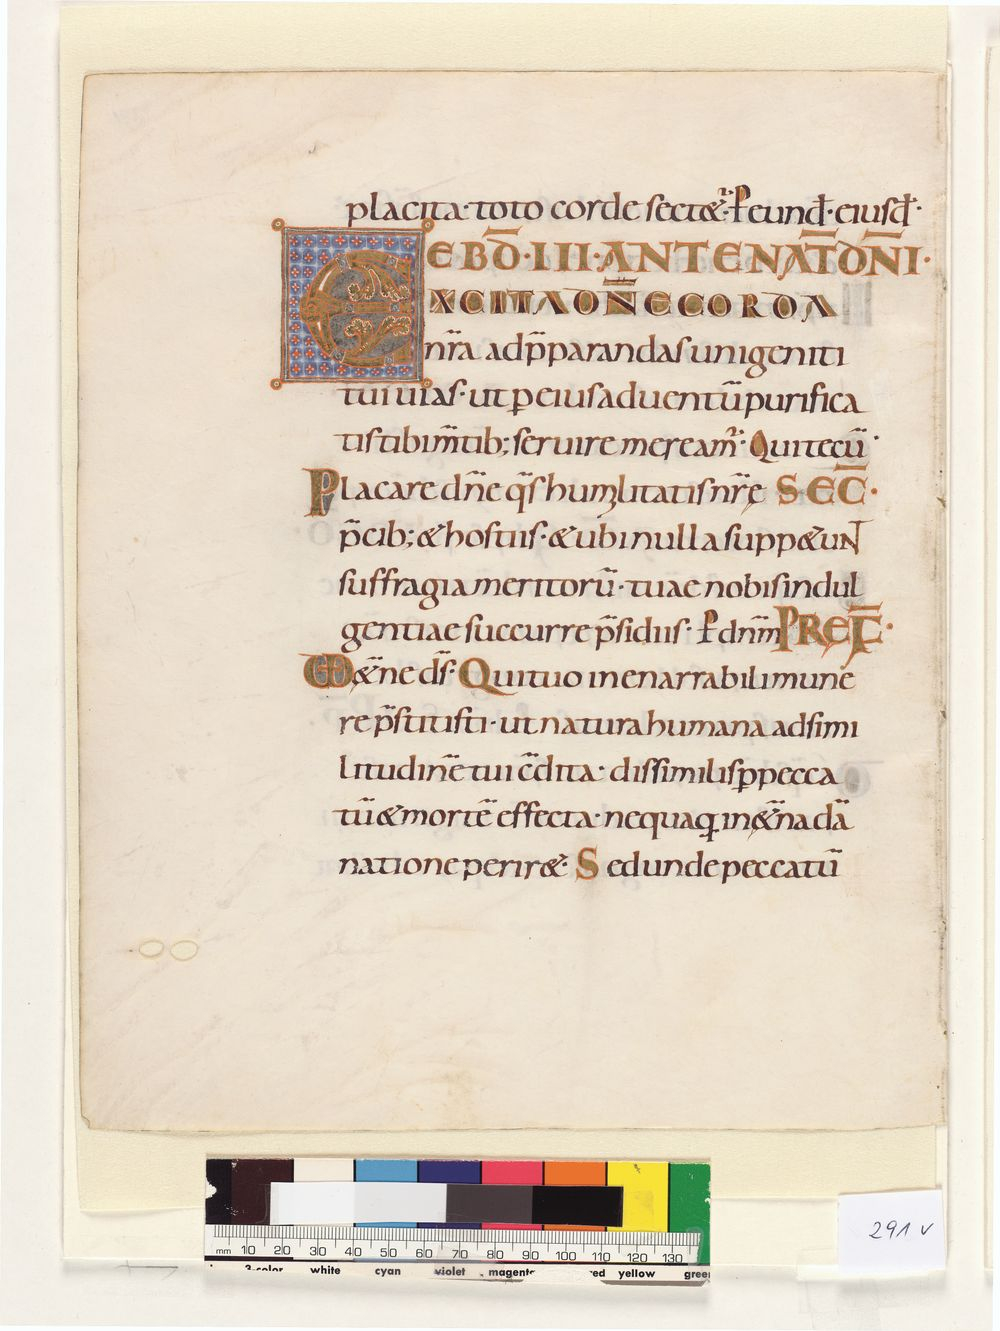 placita· toto corde sectet᷑· ꝑ eund̄· eiusd̄·
EBD̄· III· ANTE NAT̄ DN̄I·
EXCITA DN̄E CORDA
nr̄a ad p̄parandas unigeniti
tui uias· ut ꝑ eius aduentū purifica
tis tibi m̄tib; seruire meream᷑· Qui tecū·
Placare dn̄e qs̄ humilitatis nr̄ę SEC̄·
p̄cib; & hostiis· & ubi nulla suppetunt
suffragia meritorū· tuae nobis indul
gentiae succurre p̄sidiis· ꝑ dn̄m PREF̄·
&̄ne ds̄· Qui tuo inenarrabili mune
re p̄stitisti· ut natura humana ad simi
litudinē tui c̄dita· dissimilis ꝑ pecca
tū & mortē effecta· nequaq̄ in &̄na dā
natione perir&· Sed unde peccatū
291 v
mm 10 20 30 40 50 60 70 80 90 100 110 120 130
3-color white cyan violet magenta red yellow green